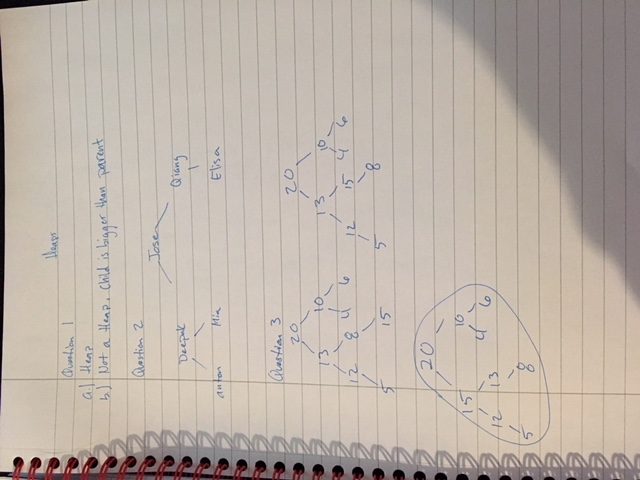 Heaps
Question 1
a.) Heap
b.) Not a Heap. Child is bigger than parent
Question 2
Jose
Deepak Qiang
anton Mia Elisa
Question 3
20
13 10
12 8 4 6
5 15
20
13 10
12 15 4 6
5 8
20
15 10
12 13 4 6
5 8